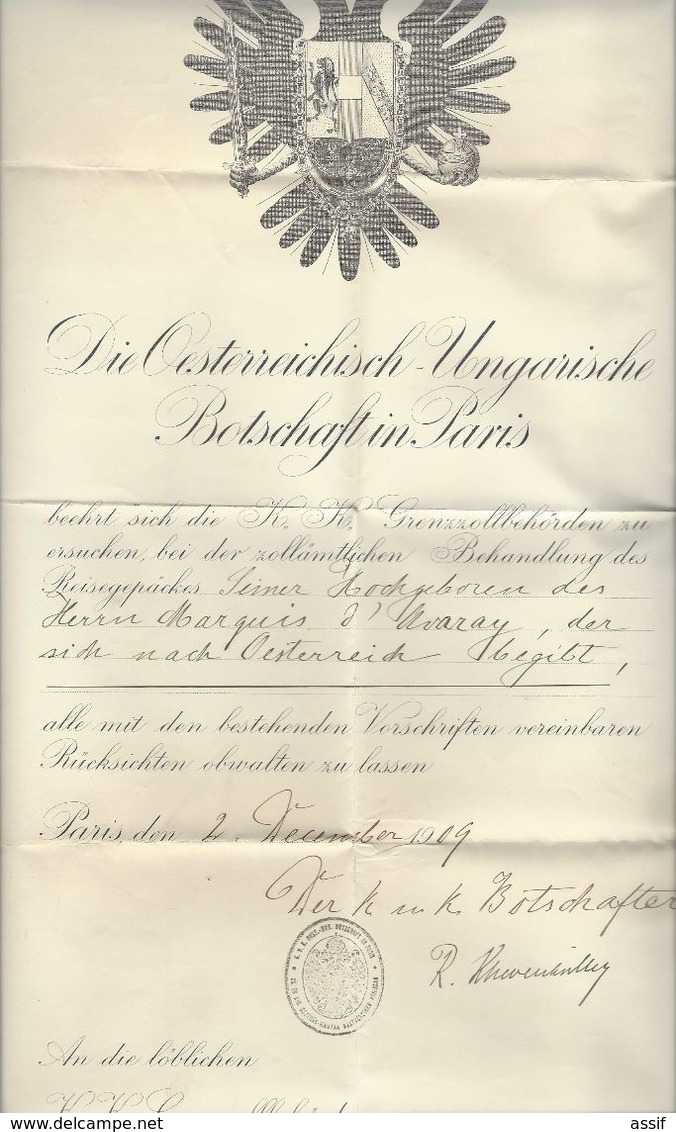 Die Oesterreichisch-Ungarische
Botschaft in Paris
beehrt sich die K. K. Grenzzollbehörden zu
ersuchen, bei der zollämtlichen Behandlung des
Reisegepäckes Seiner Hochgeboren des
Herrn Marquis d'Avaray, der
sich nach Oesterreich begibt,
alle mit den bestehenden Vorschriften vereinbaren
Rücksichten obwalten zu lassen
Paris, den 2. December 1909
Der k u k. Botschafter
R. Khevenhüller
An die löblichen
www.delcampe.net
assif